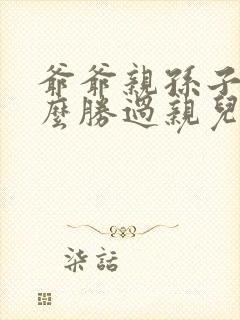 爺爺親孫子
麼勝過親兒
柒話